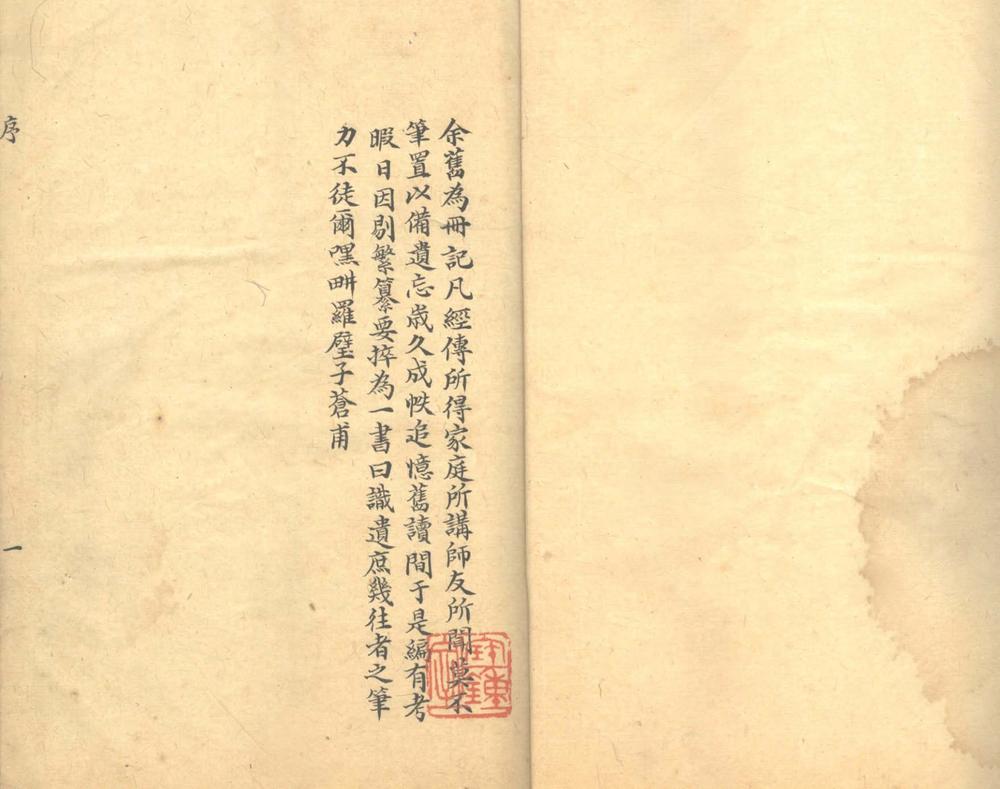 余舊為冊記凡經傳所得家庭所講師友所聞莫不
筆置以備遺忘歲久成帙追憶舊讀間于是編有考
暇日因剔繁纂要捽為一書曰識遺庶幾往者之筆
力不徒爾嘿畊羅璧子蒼甫
序
一